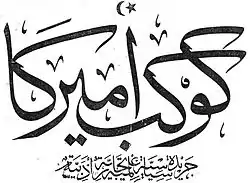 كوكب أميركا
جريدة سياسية علمية تجارية ادبية